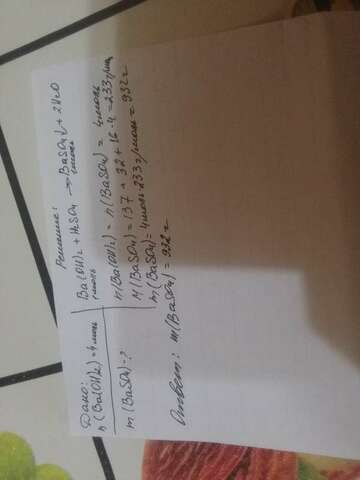 Дано:
n(Ba(OH)₂) = 4 моль
m(BaSO₄) - ?
Решение:
Ba(OH)₂ + H₂SO₄ → BaSO₄↓ + 2H₂O
1 моль 1 моль
n(Ba(OH)₂) = n(BaSO₄) = 4 моль
M(BaSO₄) = 137 + 32 + 16·4 = 233 г/моль
m(BaSO₄) = 4 моль · 233 г/моль = 932 г
Ответ: m(BaSO₄) = 932 г